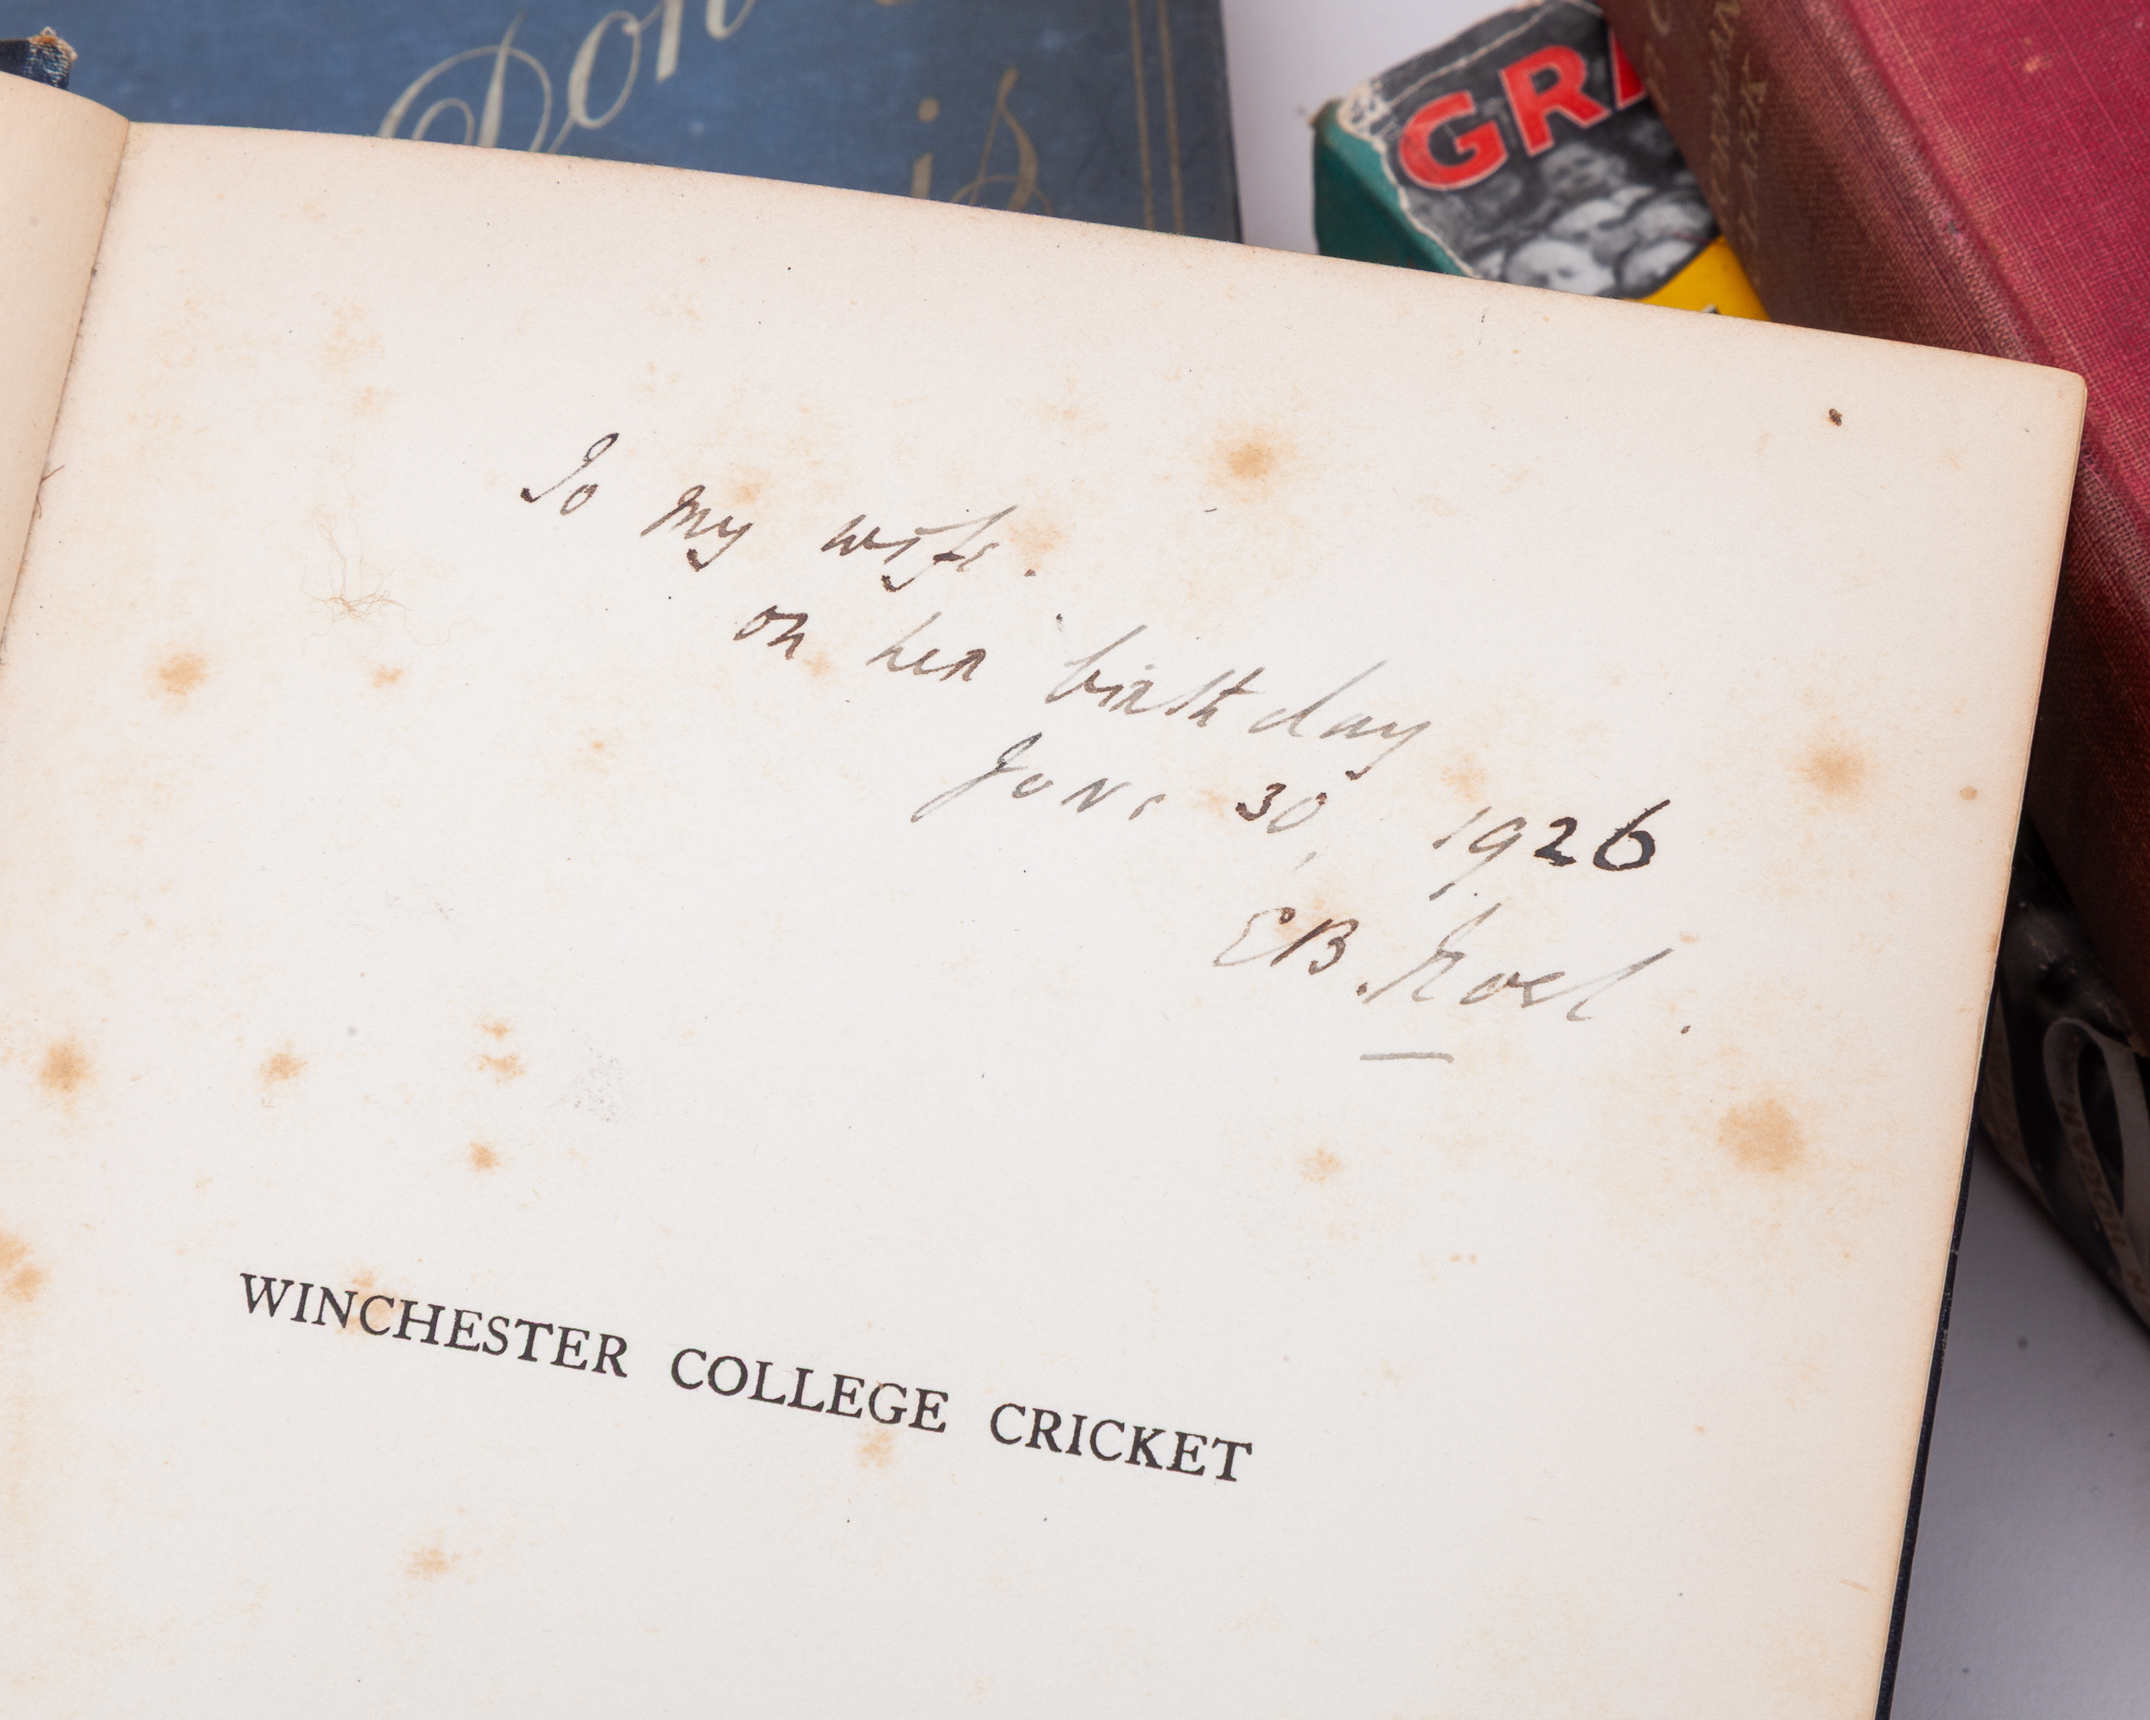 Don
is
GRA
To my wife.
on her birthday
June 30, 1926
E.B. Noel.
WINCHESTER COLLEGE CRICKET